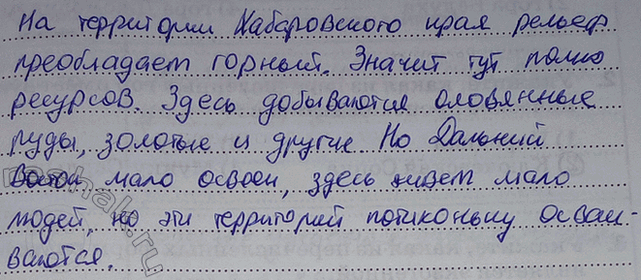 На территории Хабаровского края рельеф
преобладает горный. Значит тут полно
ресурсов. Здесь добываются оловянные
руды, золотые и другие Но Дальний
Восток мало освоен, здесь живет мало
людей, но эти территорий потиконьку осваи-
ваются.